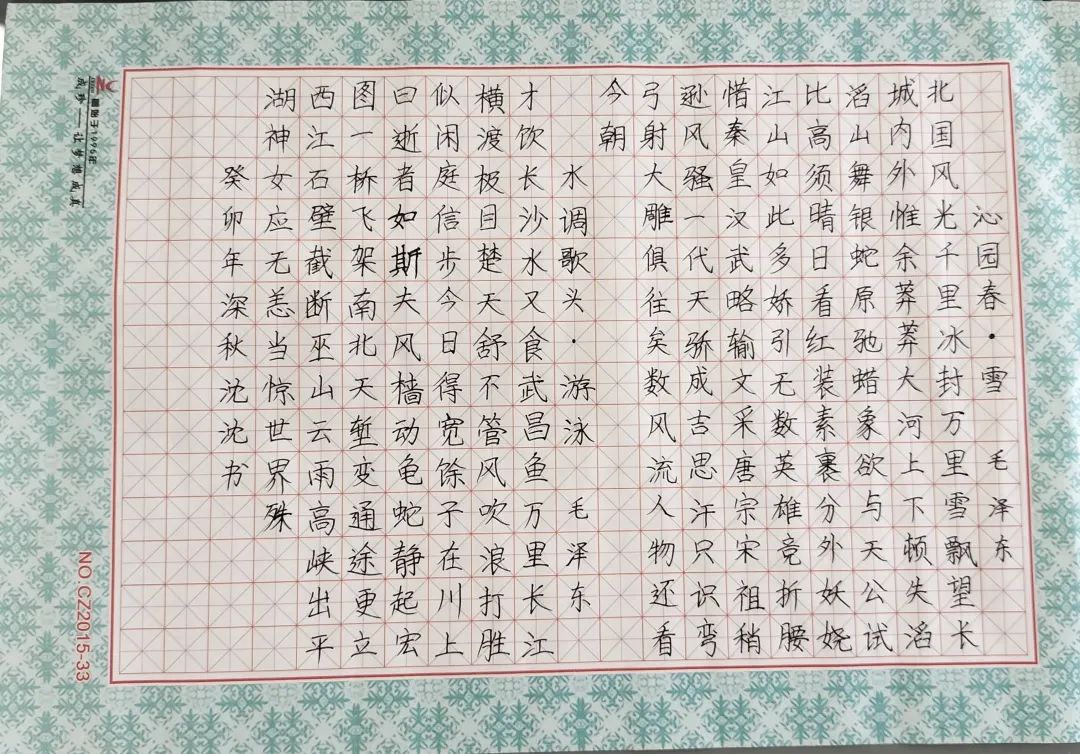 沁园春·雪 毛泽东
北国风光千里冰封万里雪飘望长
城内外惟余莽莽大河上下顿失滔
滔山舞银蛇原驰蜡象欲与天公试
比高须晴日看红装素裹分外妖娆
江山如此多娇引无数英雄竞折腰
惜秦皇汉武略输文采唐宗宋祖稍
逊风骚一代天骄成吉思汗只识弯
弓射大雕俱往矣数风流人物还看
今朝
水调歌头·游泳 毛泽东
才饮长沙水又食武昌鱼万里长江
横渡极目楚天舒不管风吹浪打胜
似闲庭信步今日得宽馀子在川上
曰逝者如斯夫风樯动龟蛇静起宏
图一桥飞架南北天堑变通途更立
西江石壁截断巫山云雨高峡出平
湖神女应无恙当惊世界殊
癸卯年深秋沈沈书
于1996年
成珍——让梦想成真
NO:CZ2015-33